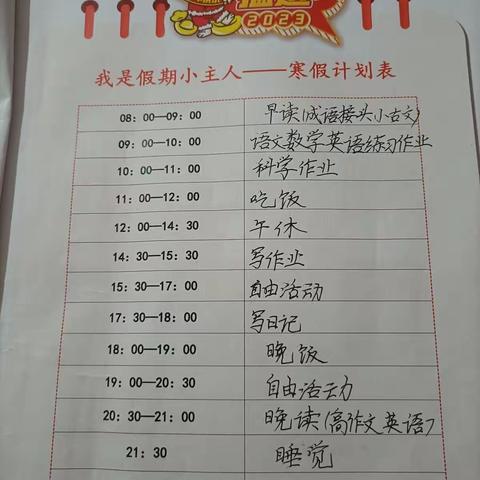 2023
我是假期小主人——寒假计划表
08：00—09：00 早读(成语接头小古文)
09：00—10：00 语文数学英语练习作业
10：00—11：00 科学作业
11：00—12：00 吃饭
12：00—14：30 午休
14：30—15：30 写作业
15：30—17：00 自由活动
17：30—18：00 写日记
18：00—19：00 晚饭
19：00—20：30 自由活动
20：30—21：00 晚读(高作文英语)
21：30 睡觉